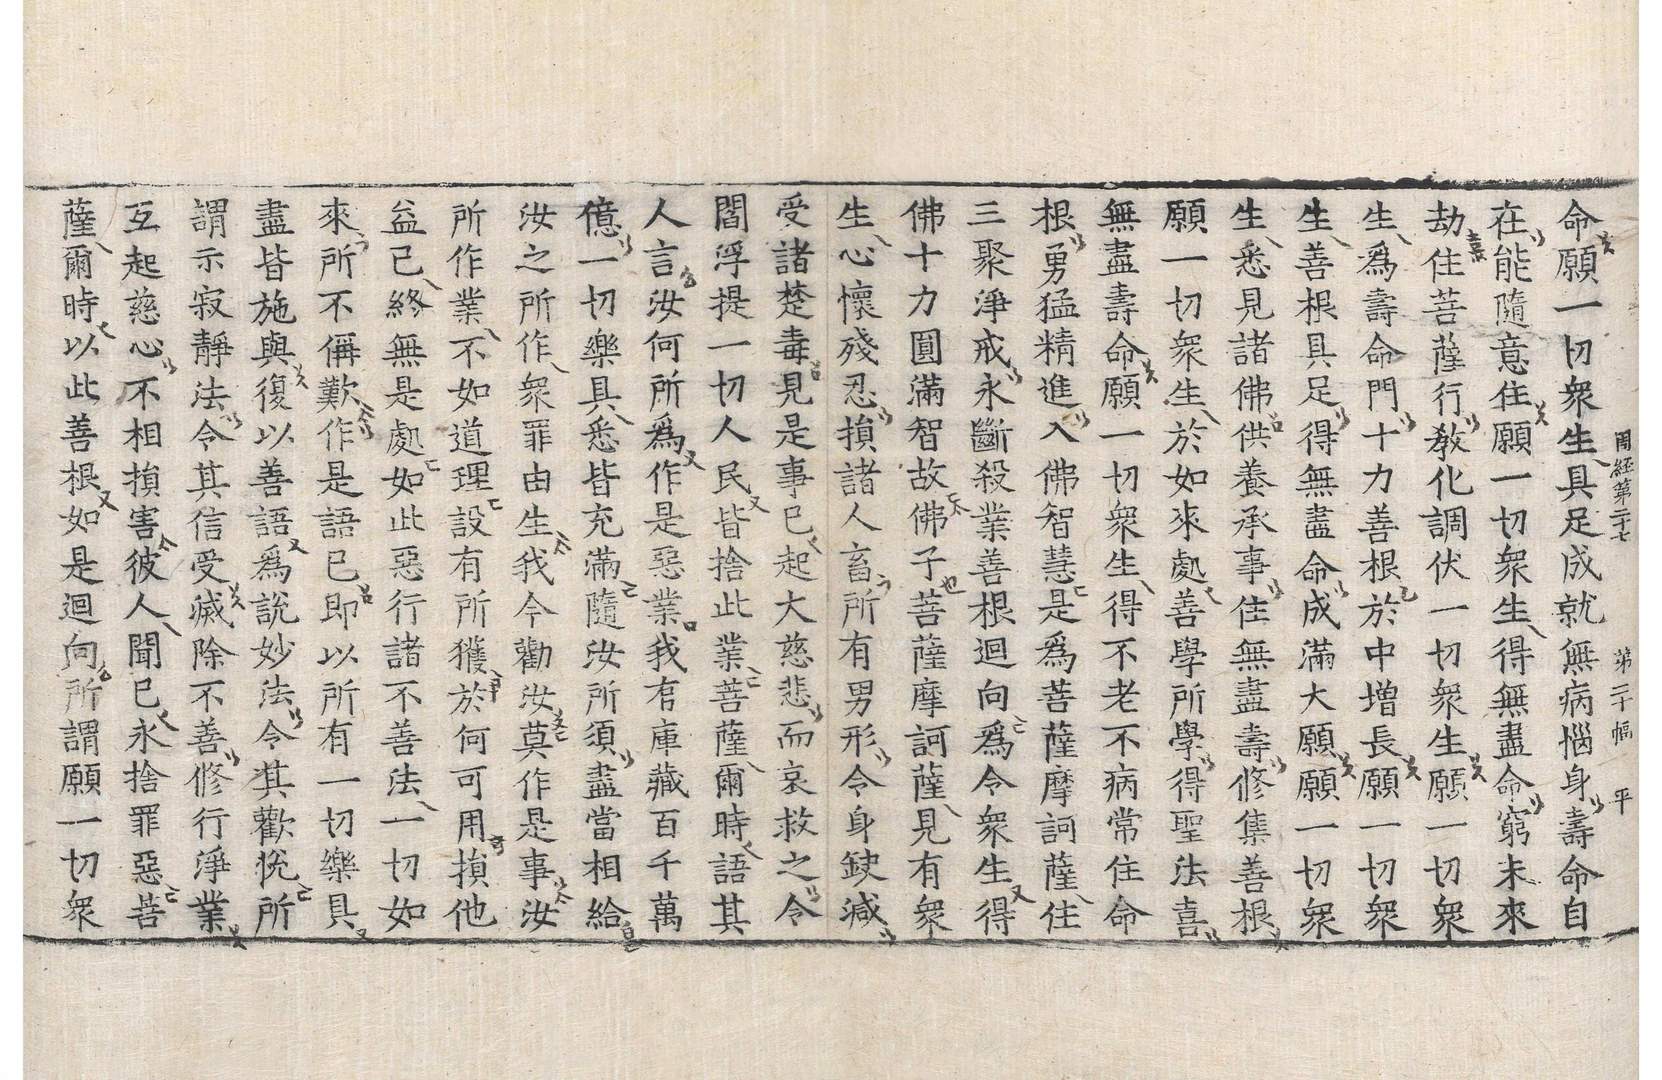 周経第二十七 第二十幅 平
命願一切衆生具足成就無病惱身壽命自
在能隨意住願一切衆生得無盡命窮未來
劫住菩薩行教化調伏一切衆生願一切衆
生爲壽命門十力善根於中增長願一切衆
生善根具足得無盡命成滿大願願一切衆
生悉見諸佛供養承事住無盡壽修集善根
願一切衆生於如來處善學所學得聖法喜
無盡壽命願一切衆生得不老不病常住命
根勇猛精進入佛智慧是爲菩薩摩訶薩住
三聚淨戒永斷殺業善根迴向爲令衆生得
佛十力圓滿智故佛子菩薩摩訶薩見有衆
生心懷殘忍損諸人畜所有男形令身缺減
受諸楚毒見是事已起大慈悲而哀救之令
閻浮提一切人民皆捨此業菩薩爾時語其
人言汝何所爲作是惡業我有庫藏百千萬
億一切樂具悉皆充滿隨汝所須盡當相給
汝之所作衆罪由生我今勸汝莫作是事汝
所作業不如道理設有所獲於何可用損他
益己終無是處如此惡行諸不善法一切如
來所不稱歎作是語已即以所有一切樂具
盡皆施與復以善語爲說妙法令其歡悅所
謂示寂靜法令其信受滅除不善修行淨業
互起慈心不相損害彼人聞已永捨罪惡菩
薩爾時以此善根如是迴向所謂願一切衆